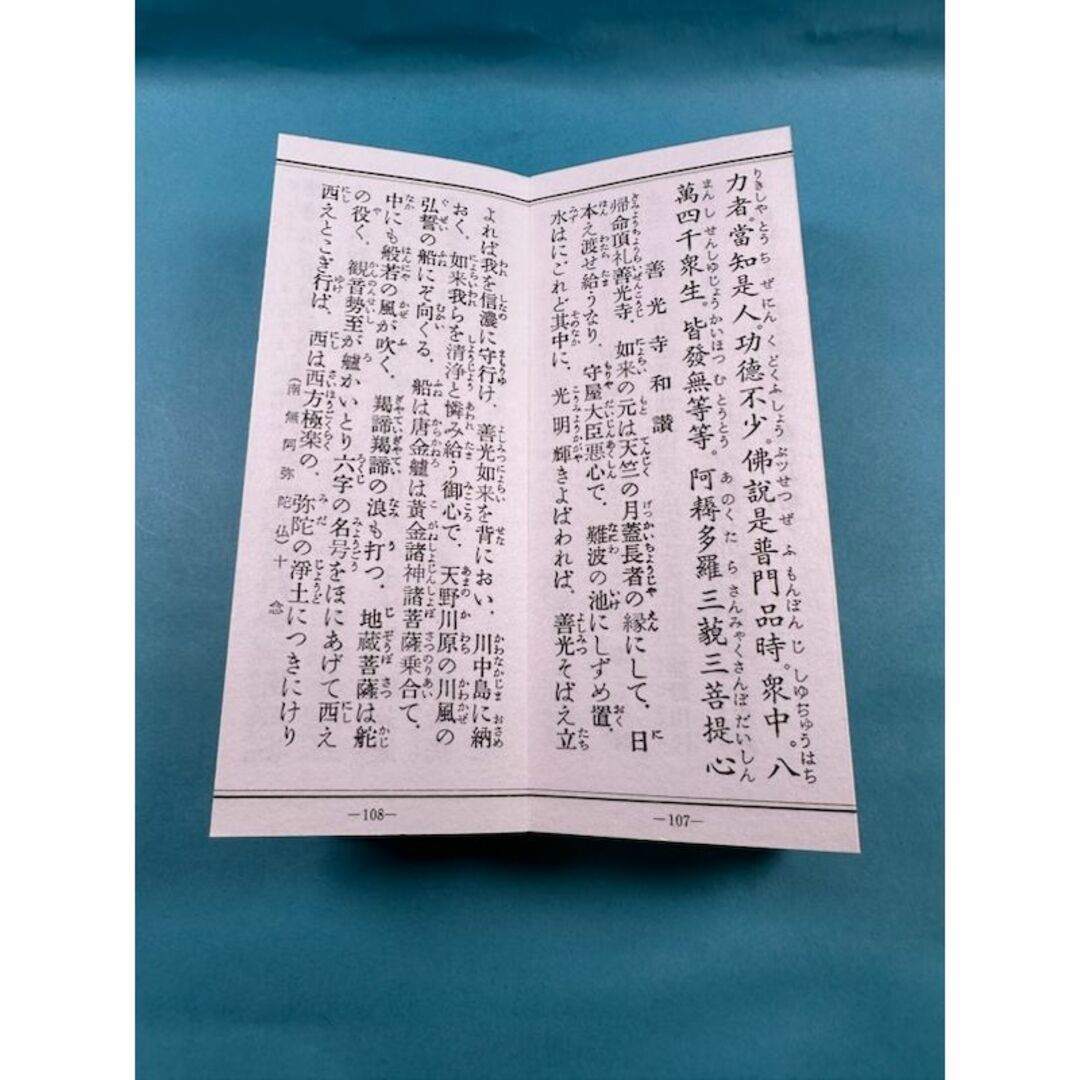 力者。當知是人。功德不少。佛說是普門品時。衆中。八
萬四千衆生。皆發無等等。阿耨多羅三藐三菩提心
善光寺和讃
帰命頂礼善光寺、如来の元は天竺の月蓋長者の縁にして、日
本え渡せ給うなり、守屋大臣悪心で、難波の池にしずめ置、
水はにごれど其中に、光明輝きよばわれば、善光そばえ立
—107—
よれば我を信濃に守行け、善光如来を背におい、川中島に納
おく、如来我らを清浄と憐み給う御心で、天野川原の川風の
弘誓の船にぞ向くる、船は唐金艫は黄金諸神諸菩薩乗合て、
中にも般若の風が吹く、羯諦羯諦の浪も打つ、地蔵菩薩は舵
の役く、観音勢至が艫かいとり六字の名号をほにあげて西え
西えとこぎ行ば、西は西方極楽の、弥陀の浄土につきにけり
(南無阿弥陀仏)十念
—108—